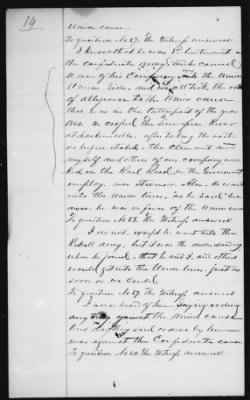 14
Union cause.
To question No 57. The Witness answered
I know that he was 3d Lieutenant in
the confederate army, and he caused
men of his Company into the Union
Union lines, and all took the oath
of allegiance to the Union cause
this was in the latter part of the year
1863. We crossed the Tennessee River
at Larkinsville. after taking the oath
as before stated, the Claimant
myself and others of our company work
ked on the Rail Road, in the Government
employ, near Stevenson Ala. He went
into the Union lines, as he said
because he was in favor of the Union cause
To question No 58. The Witness answered
I do not except he went into the
Rebel army, but it was the understanding
when he joined, that he and I, and others
would go into the Union lines, just as
soon as we could
To question No 59. The Witness answered
I never heard of him saying or doing
any thing against the Union cause
but every thing said or done by him
was against the Confederate cause
To question No 60. The Witness answered